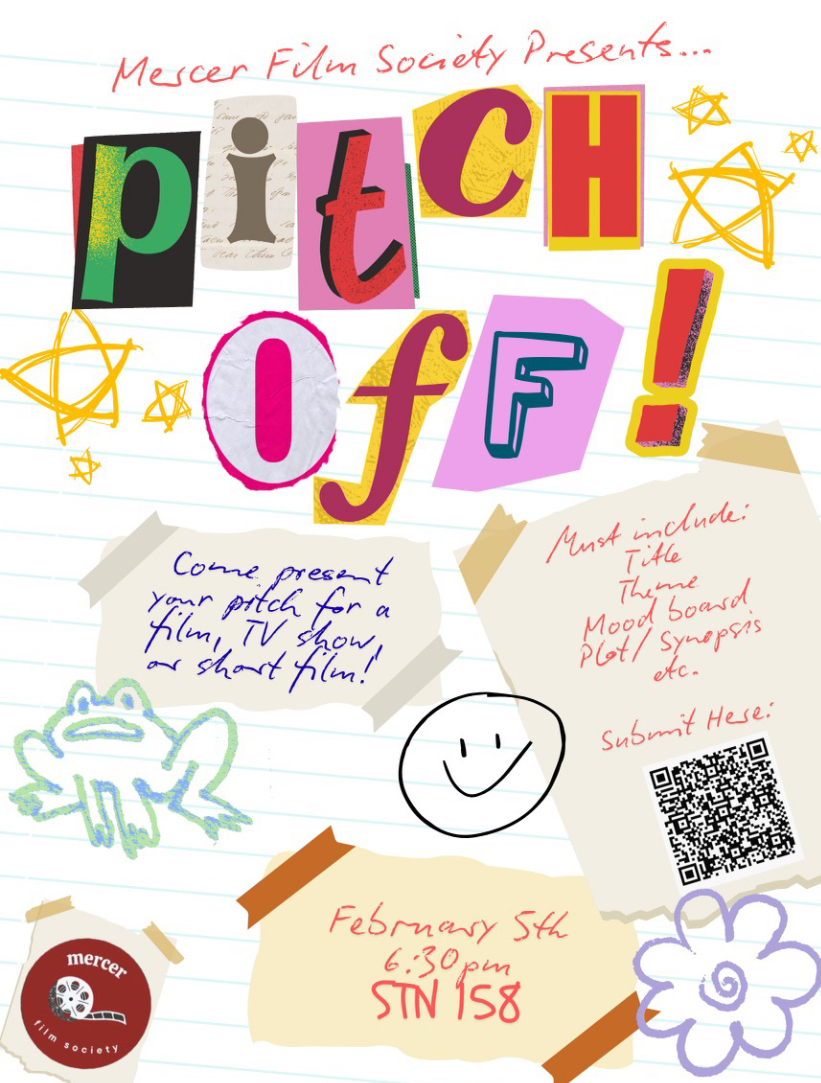 Mercer Film Society Presents...
pitcH
OfF!
Come present
your pitch for a
film, TV show,
or short film!
Must include:
Title
Theme
Mood board
Plot/Synopsis
etc.
Submit Here:
February 5th
6:30pm
STN 158
mercer
film society